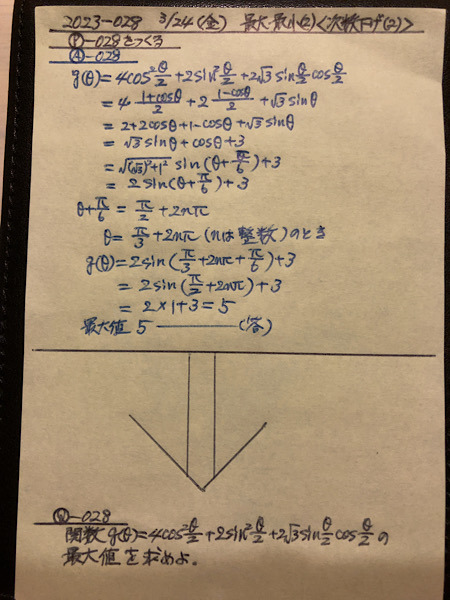 2023-028 3/24(金) 最大・最小(2)<次数下げ(2)>
Ⓟ-028をつくる
Ⓐ-028
g(θ)=4cos²θ/2+2sin²θ/2+2√3sinθ/2cosθ/2
=4 1+cosθ/2+2 1-cosθ/2+√3sinθ
=2+2cosθ+1-cosθ+√3sinθ
=√3sinθ+cosθ+3
=√((√3)²+1²) sin(θ+π/6)+3
=2sin(θ+π/6)+3
θ+π/6=π/2+2nπ
θ=π/3+2nπ(nは整数)のとき
g(θ)=2sin(π/3+2nπ+π/6)+3
=2sin(π/2+2nπ)+3
=2×1+3=5
最大値 5 ———(答)
Ⓠ-028
関数g(θ)=4cos²θ/2+2sin²θ/2+2√3sinθ/2cosθ/2の
最大値を求めよ。